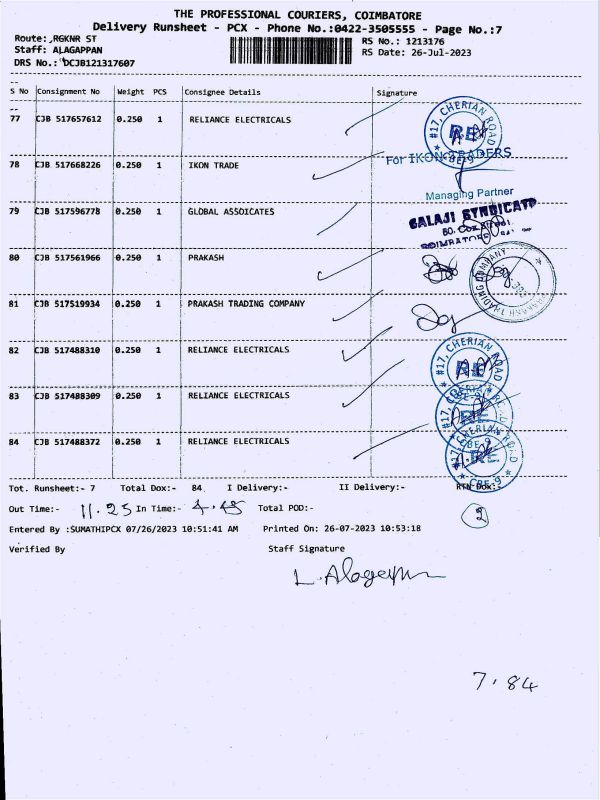 THE PROFESSIONAL COURIERS, COIMBATORE
Delivery Runsheet - PCX - Phone No.:0422-3505555 - Page No.:7
Route: ,RGKNR ST
RS No.: 1213176
Staff: ALAGAPPAN
RS Date: 26-Jul-2023
DRS No.: DCJB121317607
S No Consignment No Weight PCS Consignee Details Signature
77 CJB 517657612 0.250 1 RELIANCE ELECTRICALS
#17, CHERIAN ROAD
RE
CBE-9
78 CJB 517668226 0.250 1 IKON TRADE
For IKON TRADERS
Managing Partner
79 CJB 517596778 0.250 1 GLOBAL ASSOICATES
BALAJI SYNDICATE
80 CJB 517561966 0.250 1 PRAKASH
PRAKASH TRADING COMPANY
81 CJB 517519934 0.250 1 PRAKASH TRADING COMPANY
82 CJB 517488310 0.250 1 RELIANCE ELECTRICALS
#17, CHERIAN ROAD
RE
83 CJB 517488309 0.250 1 RELIANCE ELECTRICALS
RE
84 CJB 517488372 0.250 1 RELIANCE ELECTRICALS
#17, CHERIAN ROAD
RE
CBE-9
Tot. Runsheet:- 7 Total Dox:- 84 I Delivery:- II Delivery:- RTN Dox:-
Out Time:- 11.25 In Time:- 4.45 Total POD:- 2
Entered By :SUMATHIPCX 07/26/2023 10:51:41 AM Printed On: 26-07-2023 10:53:18
Verified By Staff Signature
7. 84